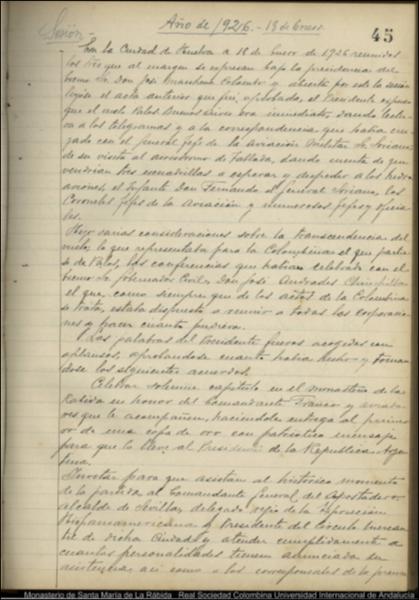 Año de 1926.- 18 de Enero.
45
Sesión
En la Ciudad de Huelva a 18 de Enero de 1926 reunidos
los Sres que al margen se expresan bajo la presidencia del
Excmo Sr. Don José Marchena Colombo y abierta por este la sesión
leyóse el acta anterior que fué aprobada, el Presidente expuso
que el vuelo Palos Buenos Aires era inmediato, dando lectu-
ra a los telegramas y a la correspondencia que había cru-
zado con el General Jefe de la Aviación Militar Sr. Soriano
de su visita al aerodromo de Tablada, dando cuenta de que
vendrían tres escuadrillas a esperar y despedir a los hidro-
aviones, el Infante Don Fernando el General Soriano, los
Coroneles Jefes de la Aviación y numerosos jefes y oficia-
les.
Hizo varias consideraciones sobre la transcendencia del
vuelo, lo que representaba para la Colombina el que partie-
se de Palos, las conferencias que habian celebrado con el
Excmo Sr. Gobernador Civil, Don José Andrades Chinchilla
el que como siempre que de los actos de la Colombina
se trata, estaba dispuesto a reunir a todas las corporacio-
nes y hacer cuanto pudiera.
Las palabras del Presidente fueron acogidas con
aplausos, aprobandose cuanto habia hecho y toman-
dose los siguientes acuerdos.
Celebrar solemne capitulo en el monasterio de la
Rabida en honor del Comandante Franco y aviado-
res que le acompañan, haciéndole entrega al prime-
ro de una copa de oro con patriótico mensaje
para que lo lleve al Presidente de la Republica Argen-
tina.
Invitar para que asistan al histórico momento
de la partida al Comandante General del Apostadero
alcalde de Sevilla, delegado regio de la Exposición
Hispanoamericana y Presidente del Circulo Mercan-
til de dicha Ciudad y atender cumplidamente a
cuantas personalidades tienen anunciada su
asistencia, asi como a los corresponsales de la prensa
Monasterio de Santa María de La Rábida Real Sociedad Colombina Universidad Internacional de Andalucía